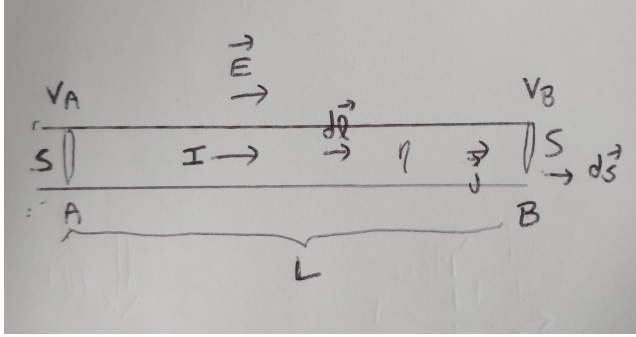 E⃗
V_A V_B
dl⃗
S I η j⃗ S
dS⃗
A B
L